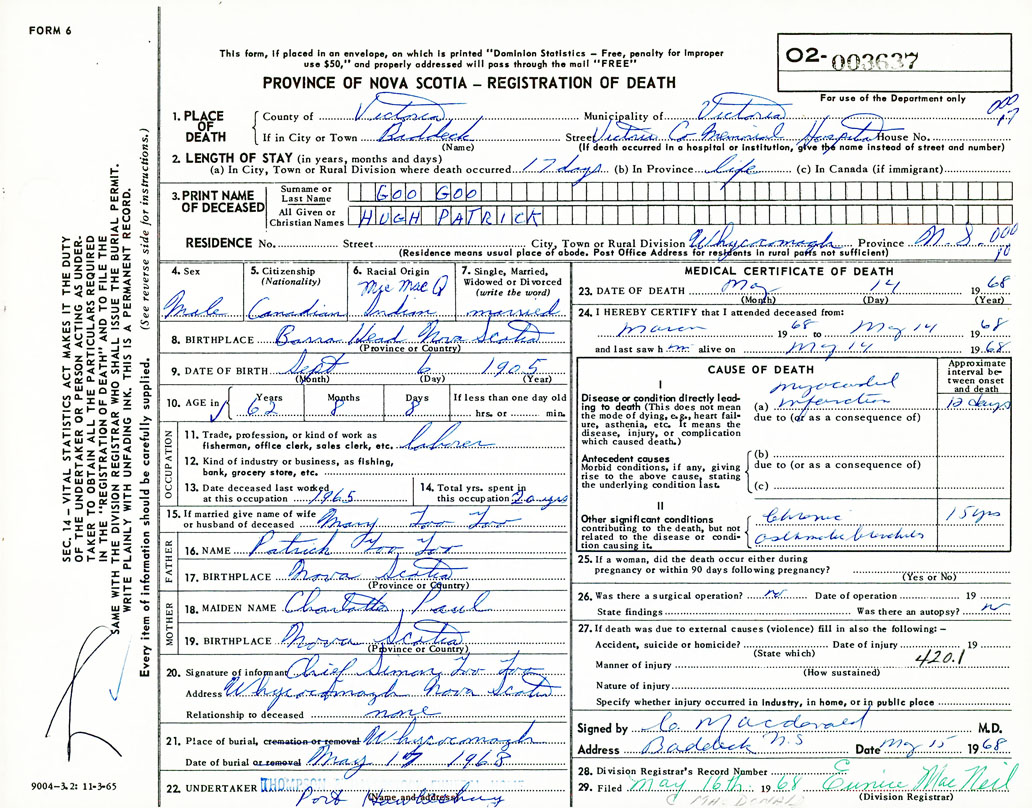 FORM 6
This form, if placed in an envelope, on which is printed "Dominion Statistics – Free, penalty for improper
use $50," and properly addressed will pass through the mail "FREE"
PROVINCE OF NOVA SCOTIA – REGISTRATION OF DEATH
02- 003637
For use of the Department only
SEC. 14 – VITAL STATISTICS ACT MAKES IT THE DUTY
OF THE UNDERTAKER OR PERSON ACTING AS UNDER-
TAKER TO OBTAIN ALL THE PARTICULARS REQUIRED
IN THE "REGISTRATION OF DEATH" AND TO FILE THE
SAME WITH THE DIVISION REGISTRAR WHO SHALL ISSUE THE BURIAL PERMIT.
WRITE PLAINLY WITH UNFADING INK. THIS IS A PERMANENT RECORD.
Every item of information should be carefully supplied. (See reverse side for instructions.)
1. PLACE OF DEATH
County of Victoria Municipality of Victoria
If in City or Town Baddeck Street Victoria Co Memorial Hospital House No.
(Name) (If death occurred in a hospital or institution, give the name instead of street and number)
2. LENGTH OF STAY (in years, months and days)
(a) In City, Town or Rural Division where death occurred 17 days (b) In Province life (c) In Canada (if immigrant)
3. PRINT NAME OF DECEASED
Surname or Last Name GOO GOO
All Given or Christian Names HUGH PATRICK
RESIDENCE No. Street City, Town or Rural Division Whycocomagh Province N.S.
(Residence means usual place of abode. Post Office Address for residents in rural parts not sufficient)
4. Sex Male
5. Citizenship (Nationality) Canadian
6. Racial Origin Mic Mac Indian
7. Single, Married, Widowed or Divorced (write the word) married
8. BIRTHPLACE Barra Head Nova Scotia
(Province or Country)
9. DATE OF BIRTH Sept 6 1905
(Month) (Day) (Year)
10. AGE in Years 62 Months 8 Days 8 If less than one day old hrs. or min.
OCCUPATION
11. Trade, profession, or kind of work as
fisherman, office clerk, sales clerk, etc. laborer
12. Kind of industry or business, as fishing,
bank, grocery store, etc.
13. Date deceased last worked at this occupation 1965
14. Total yrs. spent in this occupation 20 yrs
15. If married give name of wife
or husband of deceased Mary Goo Goo
FATHER
16. NAME Patrick Goo Goo
17. BIRTHPLACE Nova Scotia
(Province or Country)
MOTHER
18. MAIDEN NAME Charlotte Paul
19. BIRTHPLACE Nova Scotia
(Province or Country)
20. Signature of informant Chief Simon Goo Goo
Address Whycocomagh Nova Scotia
Relationship to deceased none
21. Place of burial, cremation or removal Whycocomagh
Date of burial or removal May 17 1968
22. UNDERTAKER THOMPSON
(Name and address) Port Hawkesbury
MEDICAL CERTIFICATE OF DEATH
23. DATE OF DEATH May 14 1968
(Month) (Day) (Year)
24. I HEREBY CERTIFY that I attended deceased from:
March 1968 to May 14 1968
and last saw him alive on May 14 1968
CAUSE OF DEATH
Approximate interval between onset and death
I
Disease or condition directly lead-
ing to death (This does not mean
the mode of dying, e.g., heart fail-
ure, asthenia, etc. It means the
disease, injury, or complication
which caused death.)
(a) myocardial infarction 12 days
due to (or as a consequence of)
Antecedent causes
Morbid conditions, if any, giving
rise to the above cause, stating
the underlying condition last.
(b)
due to (or as a consequence of)
(c)
II
Other significant conditions
contributing to the death, but not
related to the disease or condi-
tion causing it.
Chronic 15 yrs
asthmatic bronchitis
25. If a woman, did the death occur either during
pregnancy or within 90 days following pregnancy?
(Yes or No)
26. Was there a surgical operation? no Date of operation 19
State findings Was there an autopsy? no
27. If death was due to external causes (violence) fill in also the following: –
Accident, suicide or homicide? Date of injury 19
(State which) 420.1
Manner of injury
(How sustained)
Nature of injury
Specify whether injury occurred in Industry, in home, or in public place
Signed by C. Macdonald M.D.
Address Baddeck N.S Date May 15 1968
28. Division Registrar's Record Number
29. Filed May 16th 1968 Eunice MacNeil
C MACDONALD (Division Registrar)
9004–3.2: 11-3-65